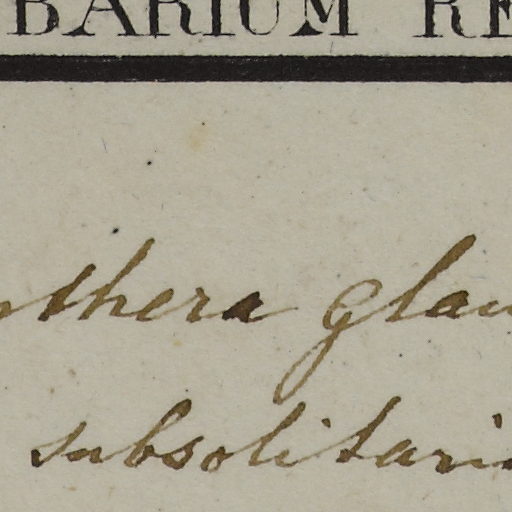 BARIUM RE
thera glau
subsolitari